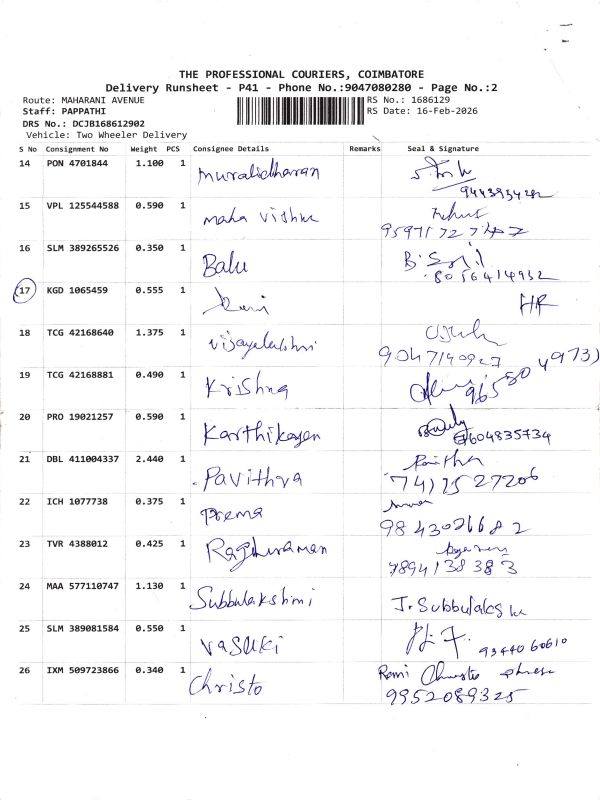 THE PROFESSIONAL COURIERS, COIMBATORE
Delivery Runsheet - P41 - Phone No.:9047080280 - Page No.:2
Route: MAHARANI AVENUE RS No.: 1686129
Staff: PAPPATHI RS Date: 16-Feb-2026
DRS No.: DCJB168612902
Vehicle: Two Wheeler Delivery
S No Consignment No Weight PCS Consignee Details Remarks Seal & Signature
14 PON 4701844 1.100 1 Muralidharan
15 VPL 125544588 0.590 1 Maha Vishnu
16 SLM 389265526 0.350 1 Balu
8056414932
17 KGD 1065459 0.555 1 HR
18 TCG 42168640 1.375 1 Vijayalakshmi
9047140927
19 TCG 42168881 0.490 1 Krishna
20 PRO 19021257 0.590 1 Karthikayen
21 DBL 411004337 2.440 1 Pavithra
22 ICH 1077738 0.375 1 Prema
9843026682
23 TVR 4388012 0.425 1 Raghuraman
7894138383
24 MAA 577110747 1.130 1 Subbulakshmi J. Subbulaks
25 SLM 389081584 0.550 1 Vasuki
9344060610
26 IXM 509723866 0.340 1 Christo
9952089325